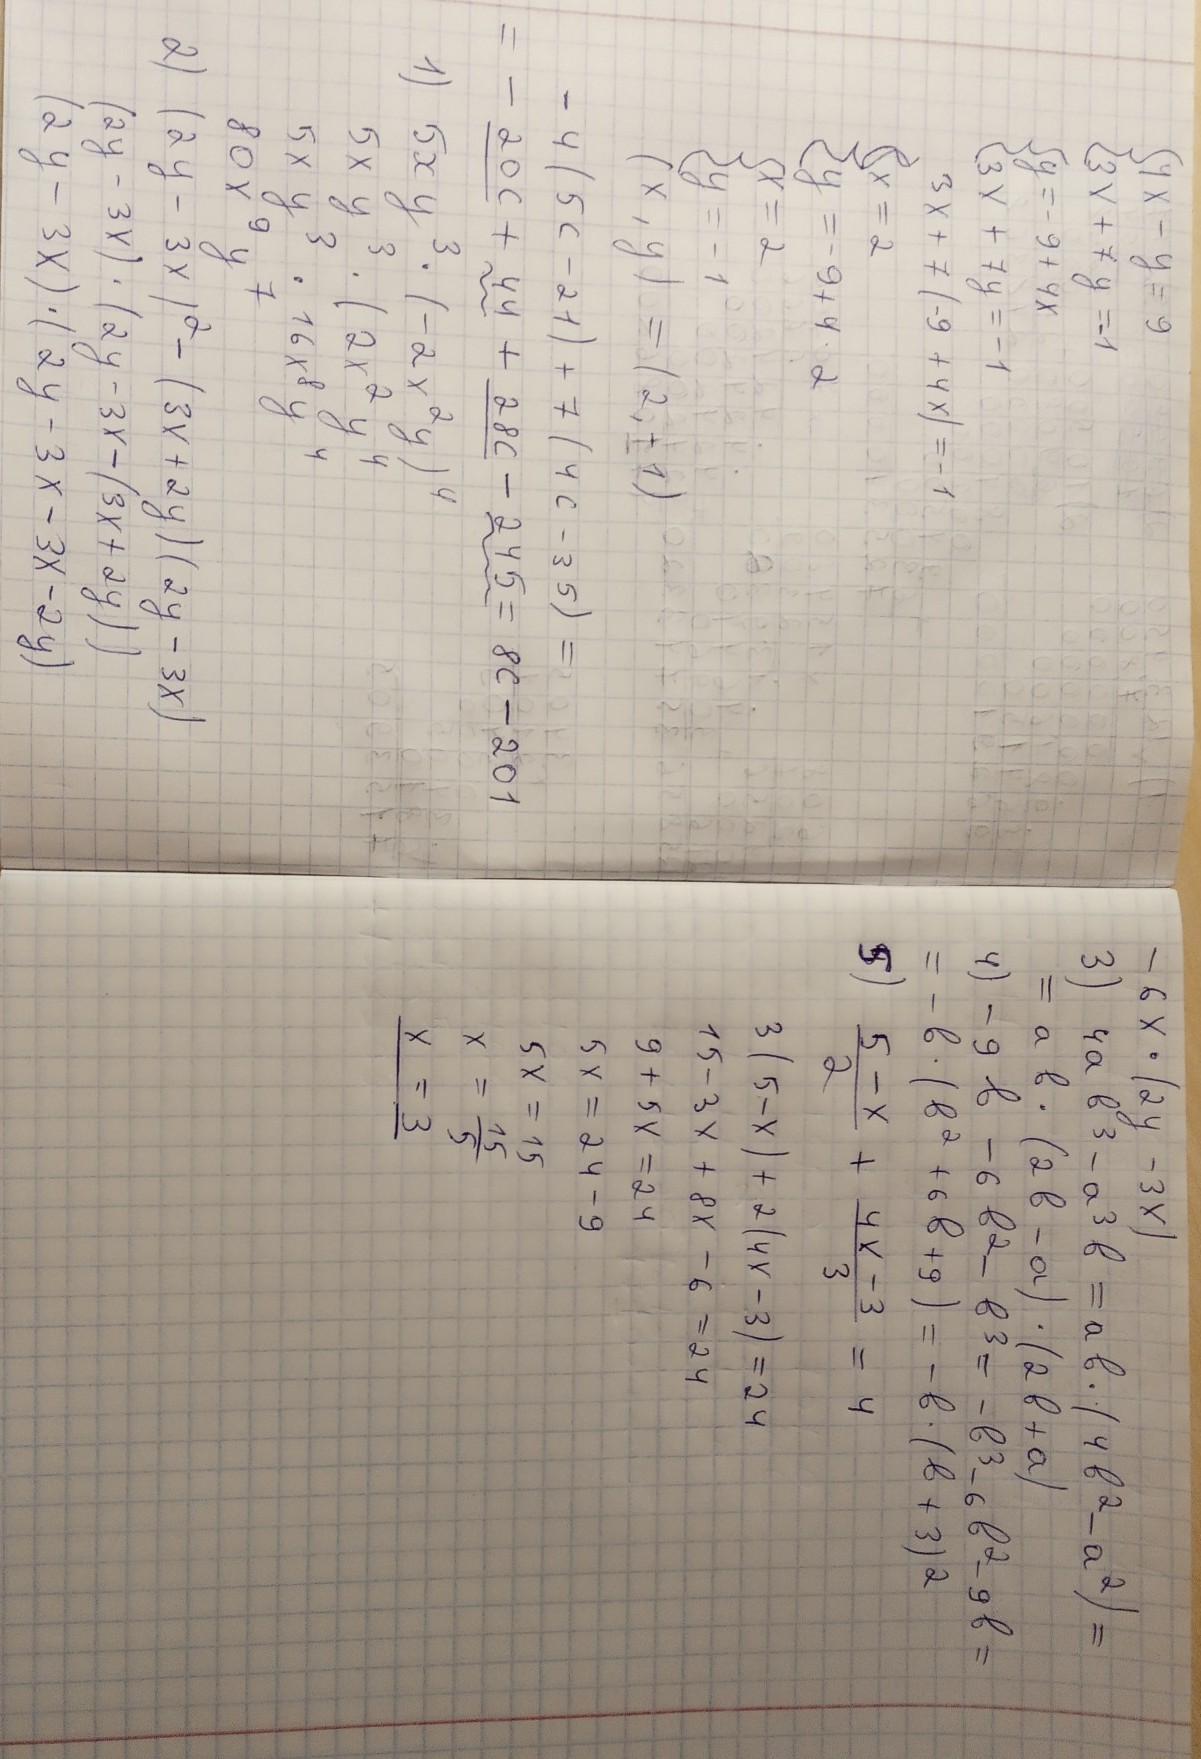 {4x - y = 9
{3x + 7y = -1
{y = -9 + 4x
{3x + 7y = -1
3x + 7(-9 + 4x) = -1
{x = 2
{y = -9 + 4 · 2
{x = 2
{y = -1
(x, y) = (2, -1)
-4(5c - 21) + 7(4c - 35) =
= -20c + 44 + 28c - 245 = 8c - 201
1) 5xy³ · (-2x²y)⁴
5xy³ · (2x²y⁴
5xy³ · 16x⁸y⁴
80x⁹y⁷
2) (2y - 3x)² - (3x + 2y)(2y - 3x)
(2y - 3x) · (2y - 3x - (3x + 2y))
(2y - 3x) · (2y - 3x - 3x - 2y)
-6x · (2y - 3x)
3) 4ab³ - a³b = ab · (4b² - a²) =
= ab · (2b - a) · (2b + a)
4) -9b - 6b² - b³ = -b³ - 6b² - 9b =
= -b · (b² + 6b + 9) = -b · (b + 3)²
5) (5 - x)/2 + (4x - 3)/3 = 4
3(5 - x) + 2(4x - 3) = 24
15 - 3x + 8x - 6 = 24
9 + 5x = 24
5x = 24 - 9
5x = 15
x = 15/5
x = 3